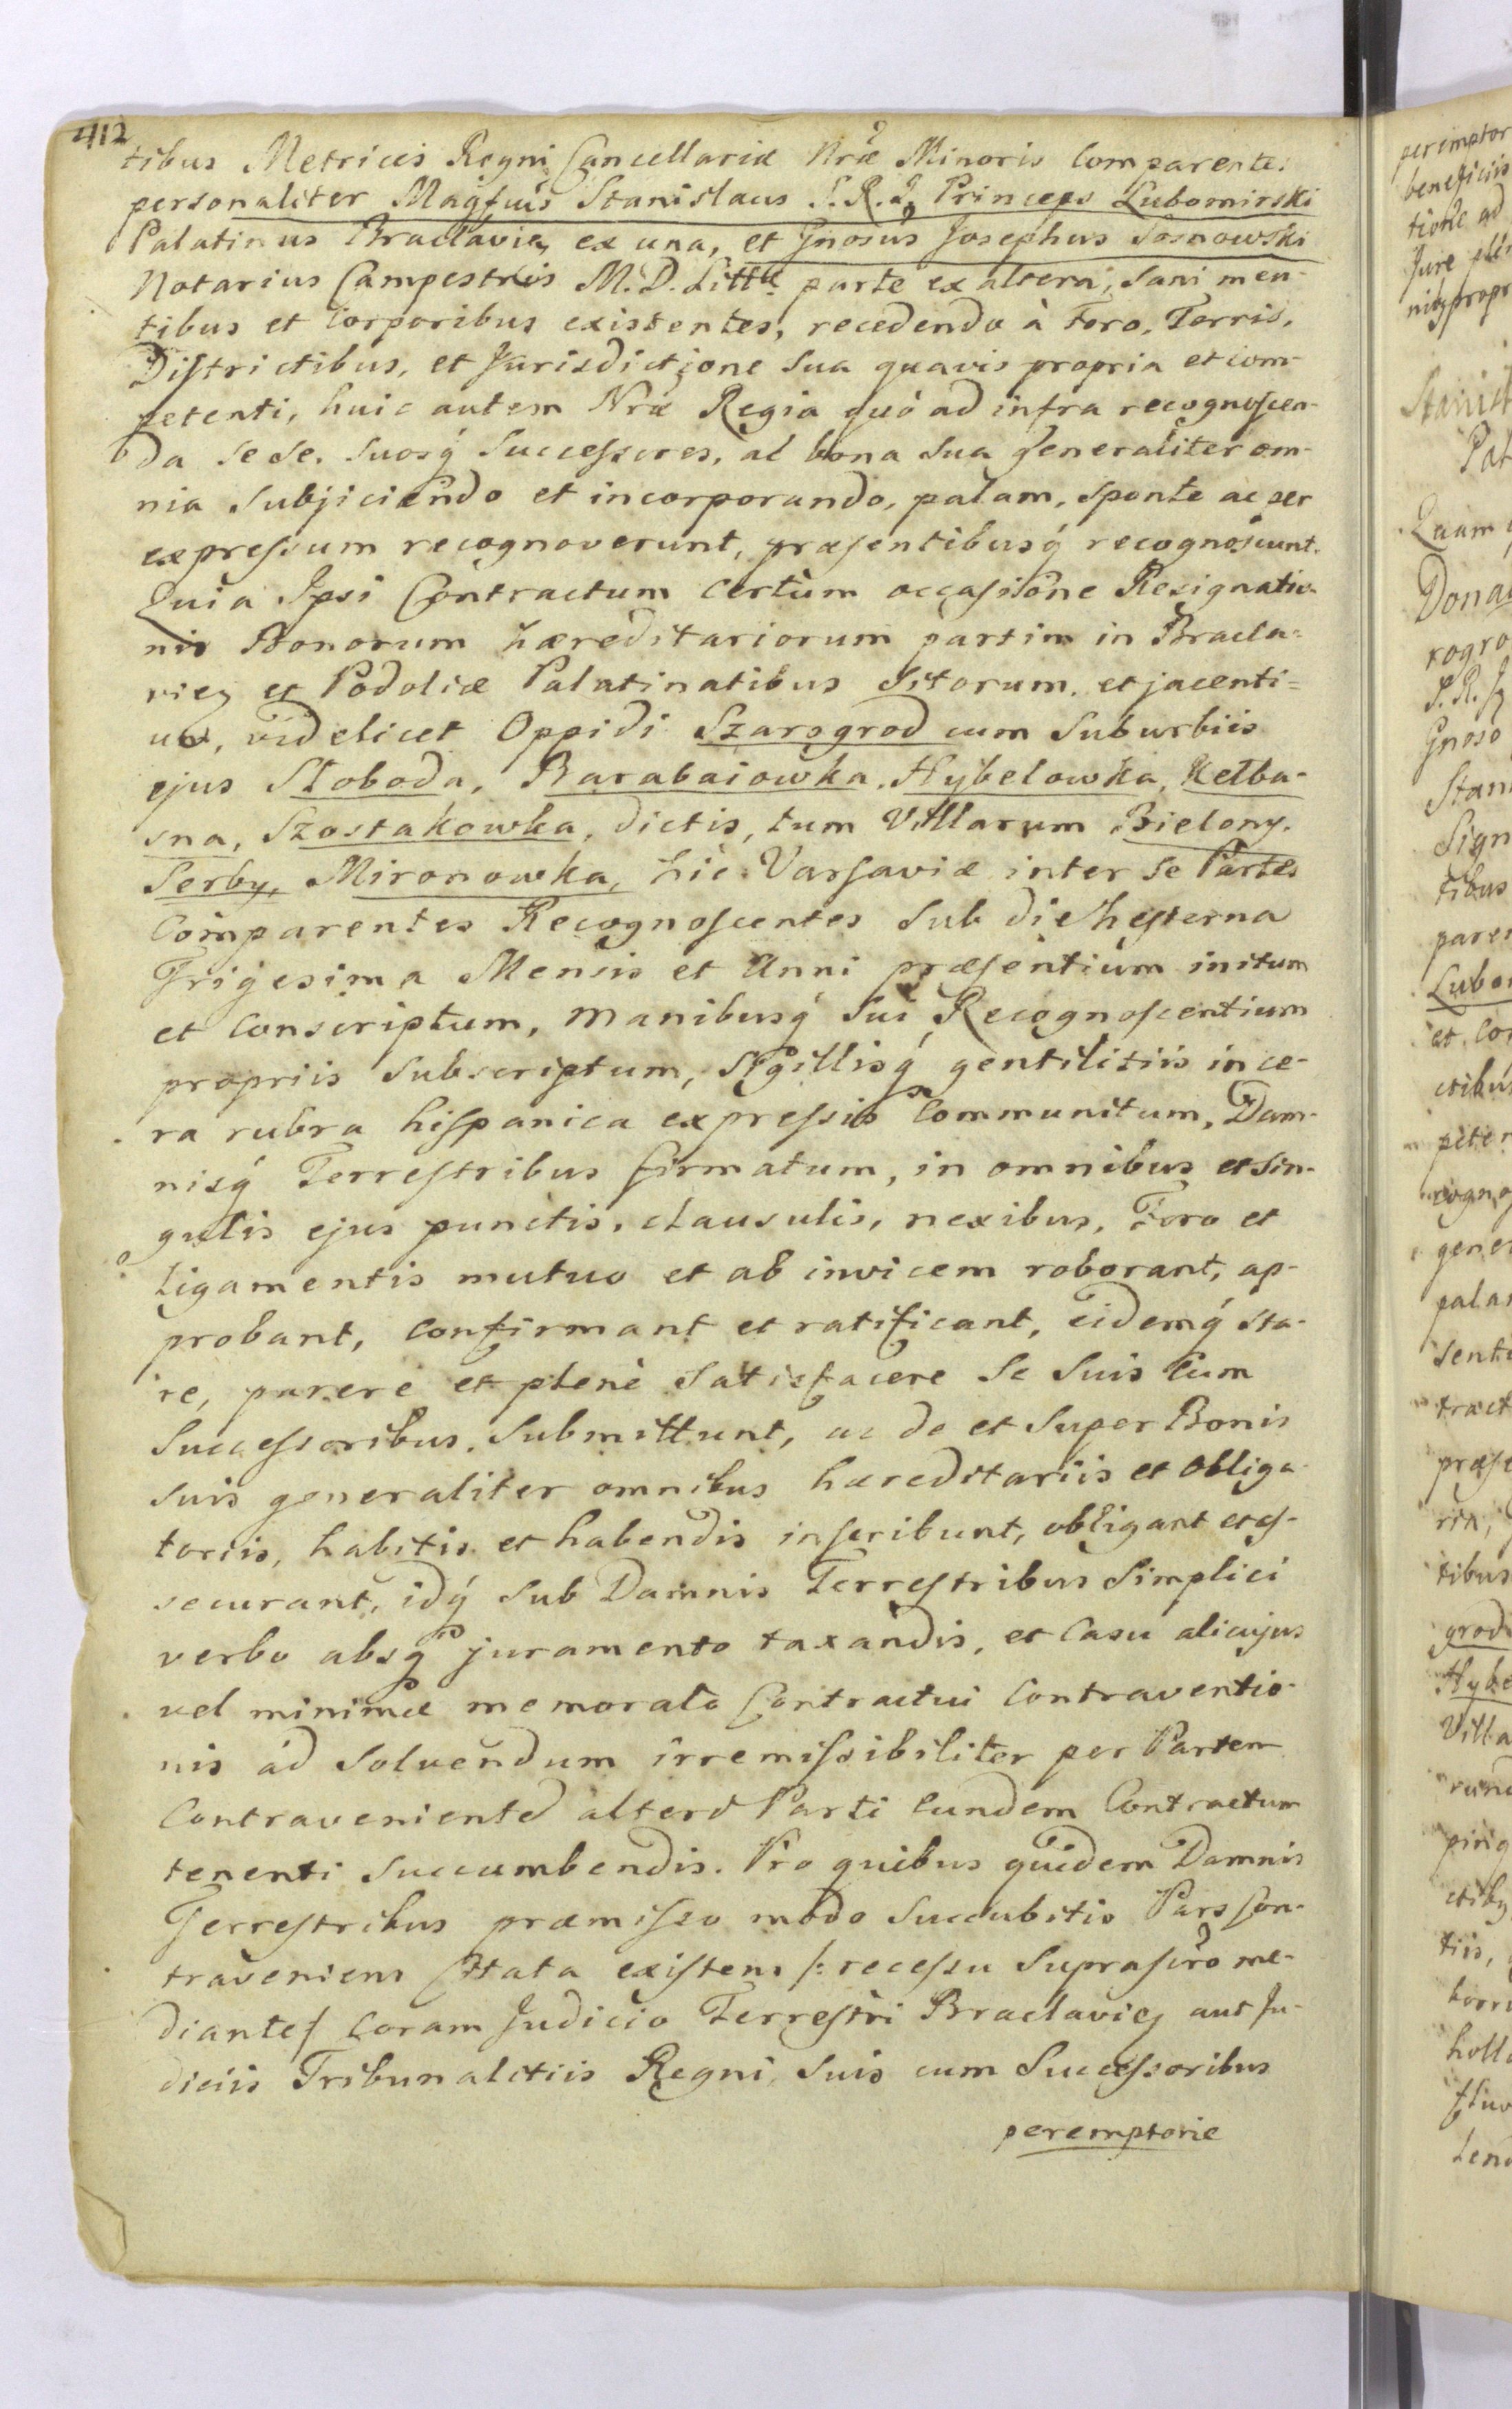 412
tibus Metrices Regni Cancellariæ Nræ Minoris Comparentes
personaliter Magfcus Stanislaus S. R. I. Princeps Lubomirski
Palatinus Braclaviæ, ex una, et Gnosus Josephus Sosnowski
Notarius Campestris M. D. Littæ parte ex altera, sani men-
tibus et Corporibus existentes, recedendo à Foro, Terris,
Districtibus, et Jurisdictione sua quavis propria et com-
petenti, huic autem Nræ Regiæ quò ad infra recognoscen-
da sese, suosq́ Successores, ac bona sua generaliter om-
nia subjiciendo et incorporando, palam, sponte ac per
expressum recognoverunt, præsentibusq́ recognoscunt.
Quia Ipsi Contractum certum occasione Resignatio-
nis Bonorum hæreditariorum partim in Bracla-
viez et Podoliæ Palatinatibus sitorum, et jacenti=
um, videlicet Oppidi Szarogrod cum Suburbiis
ejus Słoboda, Barabaiowka, Hybelowka, Kełba-
sna, Szostakowka, dictis, tum Villarum Bielony,
Serby, Mironowka, hic Varsaviæ inter se Partes
Comparentes Recognoscentes sub die hesterna
Trigesima Mensis et Anni præsentium initum
et conscriptum, manibusq́ sui Recognoscentium
propriis subscriptum, sigillisq́ gentilitiis in ce-
ra rubra hispanica expressis communitum, Dam-
nisq́ Terrestribus firmatum, in omnibus et sin-
gulis ejus punctis, clausulis, nexibus, Foro et
ligamentis mutuo et ab invicem roborant, ap-
probant, confirmant et ratificant, eidemq́ sta-
re, parere et plenè satisfacere se suis cum
Successoribus submittunt, ac de et super Bonis
suis generaliter omnibus hæreditariis et obliga-
toriis, habitis et habendis inscribunt, obligant et as-
securant, idq́ sub Damnis Terrestribus simplici
verbo absq́ juramento taxandis, et casu alicujus
vel minimæ memorato Contractui Contraventio-
nis ad solvendum irremissibiliter per Partem
Contravenientem alteri Parti eundem Contractum
tenenti succumbendis. Pro quibus quidem Damnis
Terrestribus præmisso modo succubitis Pars Con-
traveniens Citata existens /: recessu suprascrõ me-
diante/ coram Judicio Terrestri Braclaviez aut Ju-
diciis Tribunalitiis Regni, suis cum Successoribus
peremptorie